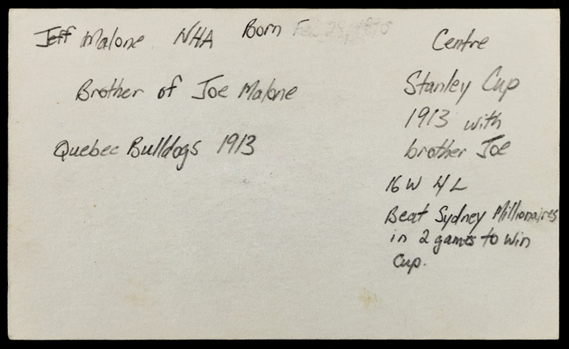 Jeff Malone NHA Born
Brother of Joe Malone
Quebec Bulldogs 1913
Centre
Stanley Cup
1913 with
brother Joe
16 W 4 L
Beat Sydney Millionaires
in 2 games to win
Cup.